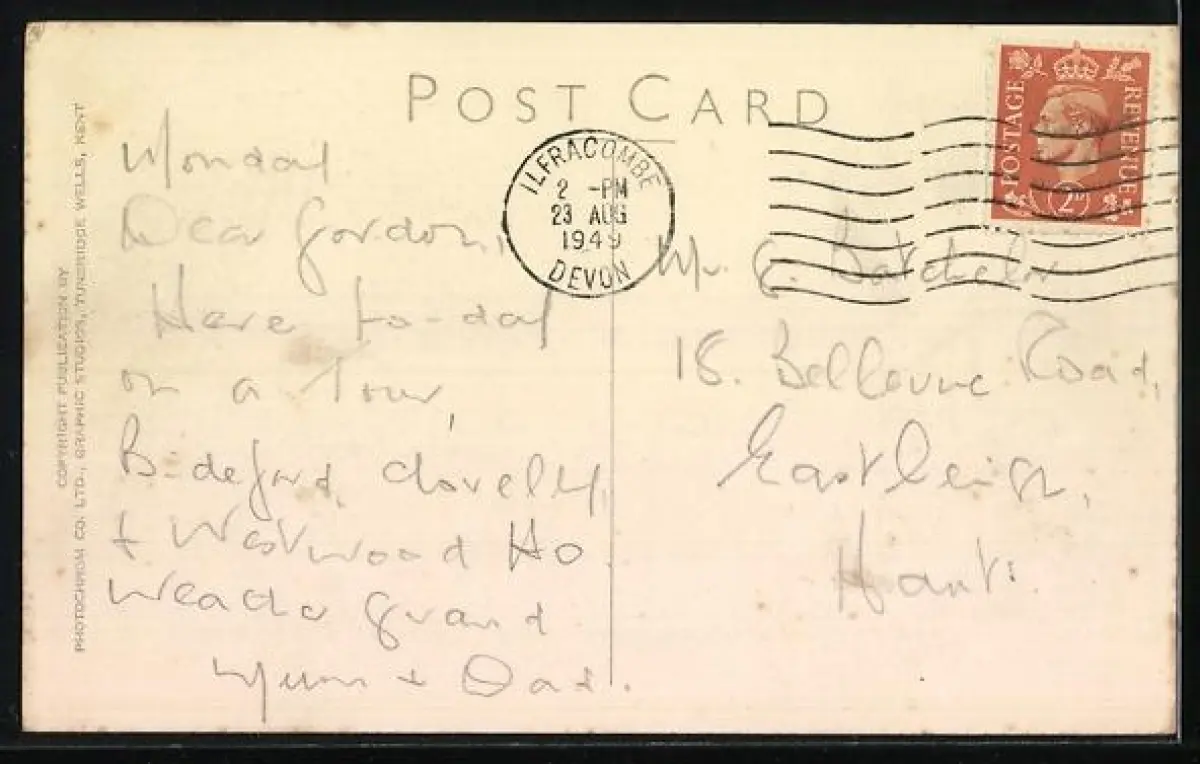 POST CARD
COPYRIGHT PUBLICATION BY
PHOTOCHROM CO. LTD., GRAPHIC STUDIOS, TUNBRIDGE WELLS, KENT
ILFRACOMBE
2 -PM
23 AUG
1949
DEVON
POSTAGE
REVENUE
2D
Monday
Dear Gordon,
Here to-day
on a Tour,
Bideford, Clovelly,
& Westwood Ho
Weather grand
Mum & Dad.
Mr. G. Batchelor
18. Bellevue Road,
Eastleigh,
Hants.